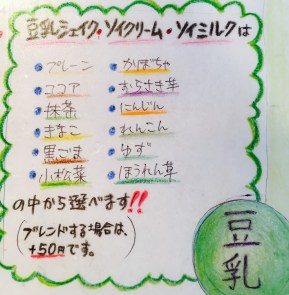 豆乳シェイク・ソイクリーム・ソイミルクは
・プレーン ・かぼちゃ
・ココア ・むらさき芋
・抹茶 ・にんじん
・きなこ ・れんこん
・黒ごま ・ゆず
・小松菜 ・ほうれん草
の中から選べます!!
(ブレンドする場合は、
+50円です。)
豆乳